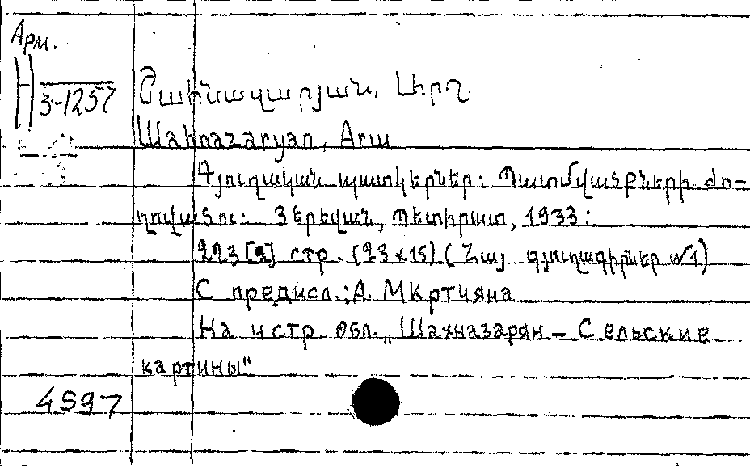 Арм.
Н 3-1257
Շահնազարյան,
Шahnazaryan, Ara
Գյուղական պատկերներ: Պատմվածքների ժո-
ղովածու: Յերեվան, Պետհրատ, 1933:
223 [2] стр. (23x15) (Հայ գյուղագիրներ №1)
С предисл.: А. Мкртчяна
На 4 стр. обл. „Шахназарян – Сельские
картины"
4597